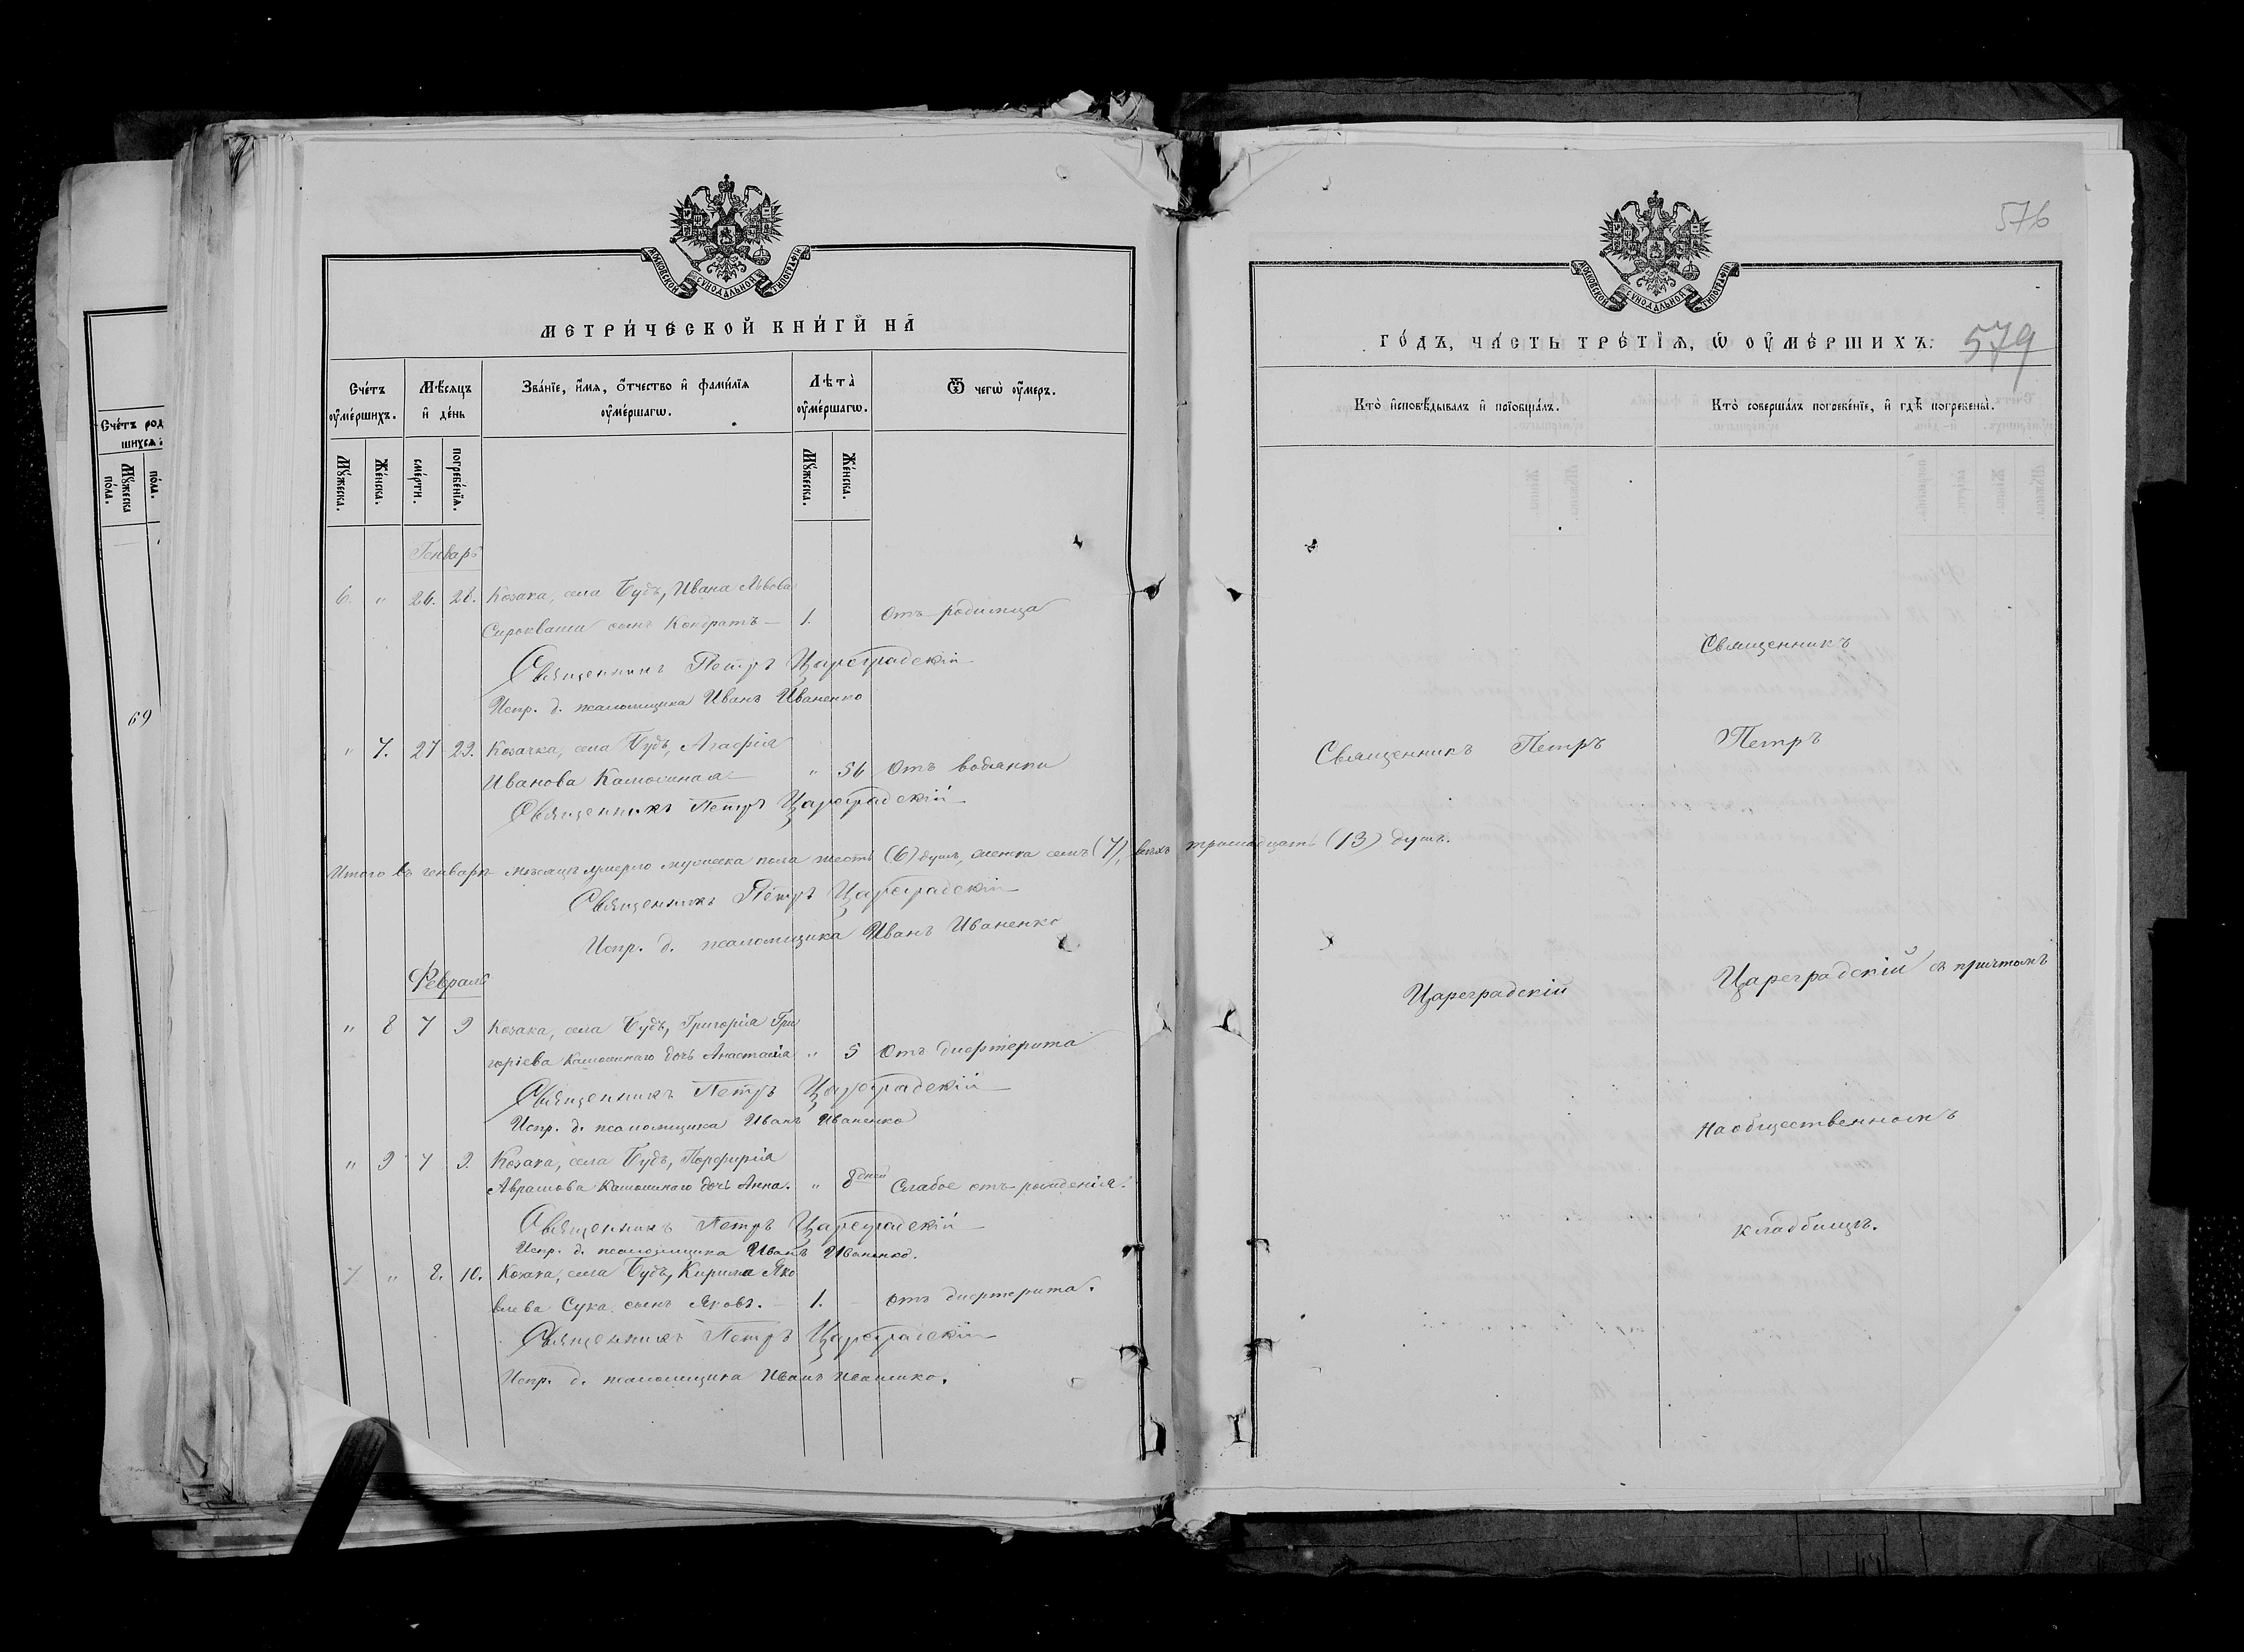 МОСКОВСКОЙ СУНОДАЛЬНОЙ ТИПОГРАФІИ
МЕТРИ́ЧЕСКОЙ КНИ́ГИ НА̀
Сче́тъ ᲂу҆ме́ршихъ.
Мѣ́сяцъ и҆ де́нь
Зва́нїе, и҆́мя, ѻ҆́тчество и҆ фами́лїя ᲂу҆ме́ршагѡ.
Лѣ́та ᲂу҆ме́ршагѡ.
Ѿ чегѡ̀ ᲂу҆́меръ.
Мꙋ́жеска.
Же́нска.
сме́рти.
погребе́нїя.
Мꙋ́жеска.
Же́нска.
Генварь
6. " 26. 28. Козака, села Будъ, Ивана Львова
Сыроваши сынъ Кондратъ — 1. Отъ родимца
Священникъ Петръ Цареградскій
Испр. д. псаломщика Иванъ Иваненко
" 7. 27 29. Козачка, села Будъ, Агафія
Иванова Камошная — " 56 Отъ водянки
Священникъ Петръ Цареградскій
Итого въ генварѣ мѣсяцѣ умерло мужеска пола шесть (6) душъ, женска семь (7), всѣхъ тринадцать (13) душъ.
Священникъ Петръ Цареградскій
Испр. д. псаломщика Иванъ Иваненко
Февраль
" 8 7 9 Козака, села Будъ, Григорія Гри
горіева Камошнаго дочь Анастасія " 5 Отъ дифтерита
Священникъ Петръ Цареградскій
Испр. д. псаломщика Иванъ Иваненко
" 9 7 9. Козака, села Будъ, Порфирія
Аврамова Камошнаго дочь Анна. " 8 дней Слабое отъ рожденія.
Священникъ Петръ Цареградскій
Испр. д. псаломщика Иванъ Иваненко.
7 " 8. 10. Козака, села Будъ, Кирила Яко
влева Сука сынъ Яковъ. — 1. — отъ дифтерита.
Священникъ Петръ Цареградскій
Испр. д. псаломщика Иванъ Иваненко.
576
МОСКОВСКОЙ СУНОДАЛЬНОЙ ТИПОГРАФІИ
ГО́ДЪ, ЧА́СТЬ ТРЕ́ТЇѦ, Ѡ҆ ОУ҆МЕ́РШИХЪ.
579
Кто̀ и҆сповѣ́дывалъ и҆ прїобща́лъ.
Кто̀ соверша́лъ погребе́нїе, и҆ гдѣ̀ погребены̀.
Священникъ
Священникъ Петръ
Петръ
Цареградскій
Цареградскій съ причтомъ
На общественномъ
кладбищѣ.
Сче́тъ род
шихся
Мꙋ́жеска по́ла.
по́ла.
69